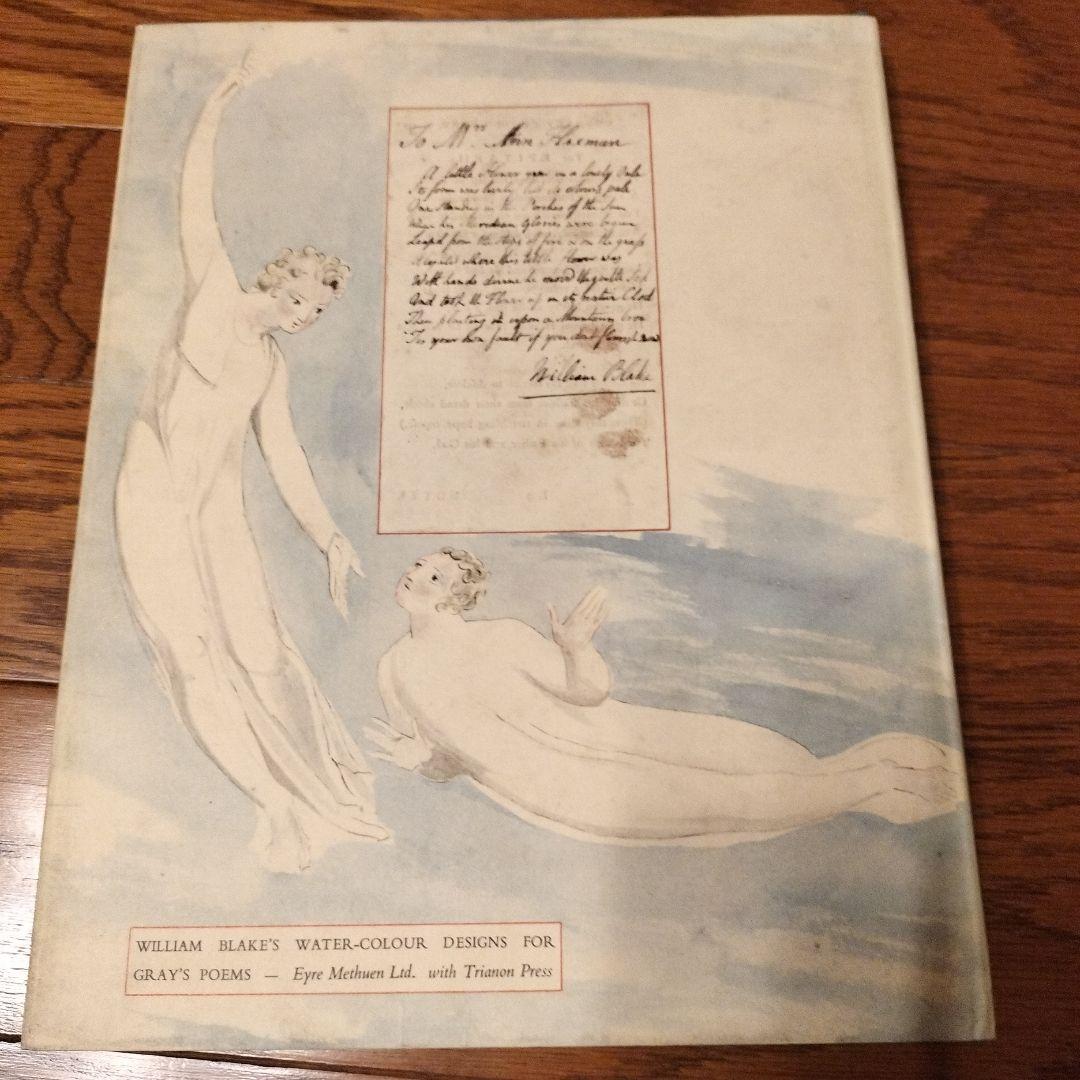 To Mrs Ann Flaxman
A little Flower grew in a lonely Vale
Its form was lovely but its colours pale
One standing in the Porches of the Sun
When his Meridian Glories were begun
Leapd from the steps of fire & on the grass
Alighted where this little flower was
With hands divine he movd the gentle Sod
And took the Flower up in its native Clod
Then planting it upon a Mountains brow
Tis your own fault if you dont flourish now
William Blake
WILLIAM BLAKE'S WATER-COLOUR DESIGNS FOR
GRAY'S POEMS — Eyre Methuen Ltd. with Trianon Press